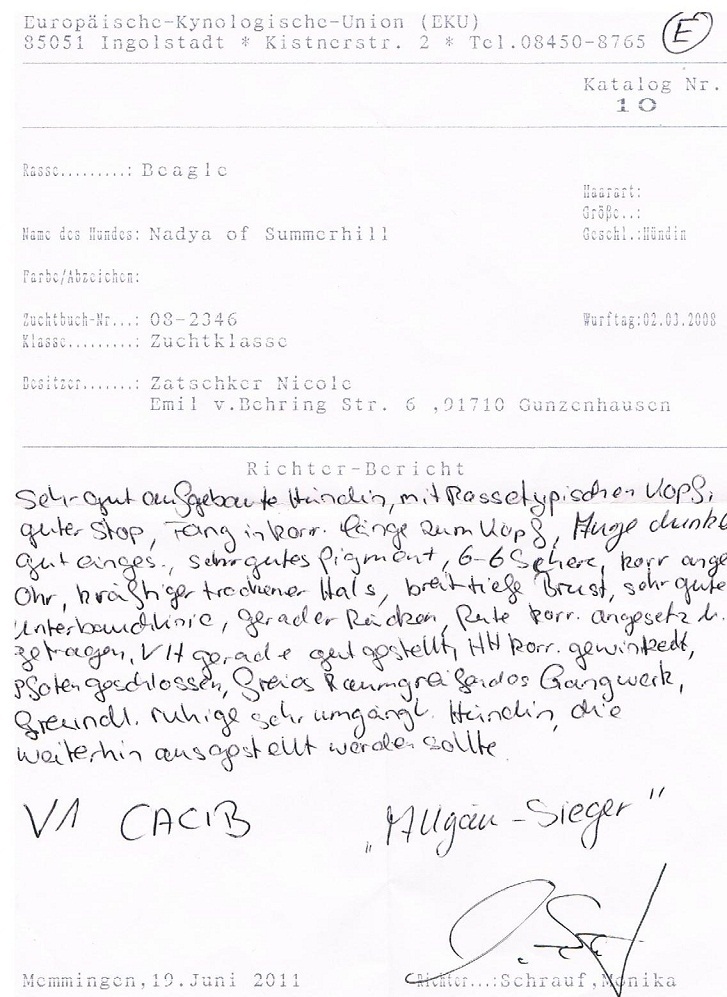 Europäische-Kynologische-Union (EKU)
85051 Ingolstadt * Kistnerstr. 2 * Tel.08450-8765
E
Katalog Nr.
10
Rasse.........: Beagle
Haarart:
Größe..:
Name des Hundes: Nadya of Summerhill
Geschl.:Hündin
Farbe/Abzeichen:
Zuchtbuch-Nr...: 08-2346
Wurftag:02.03.2008
Klasse.........: Zuchtklasse
Besitzer.......: Zatschker Nicole
Emil v.Behring Str. 6 ,91710 Gunzenhausen
Richter-Bericht
Sehr gut aufgebaute Hündin, mit Rassetypischen Kopf,
guter Stop, Fang in korr. Länge zum Kopf, Auge dunkel
gut einges., sehr gutes Pigment, 6-6 Schere, korr ange
Ohr, kräftiger trockener Hals, breit tiefe Brust, sehr gute
Unterbauchlinie, gerader Rücken, Rute korr. angesetz u.
getragen, VH gerade gut gestellt, HH korr. gewinkelt,
Pfoten geschlossen, freies Raumgreifendes Gangwerk,
freundl. ruhige sehr umgängl. Hündin, die
weiterhin ausgestellt werden sollte
V1 CACIB „Allgäu-Sieger"
Memmingen,19.Juni 2011
Richter...:Schrauf,Monika